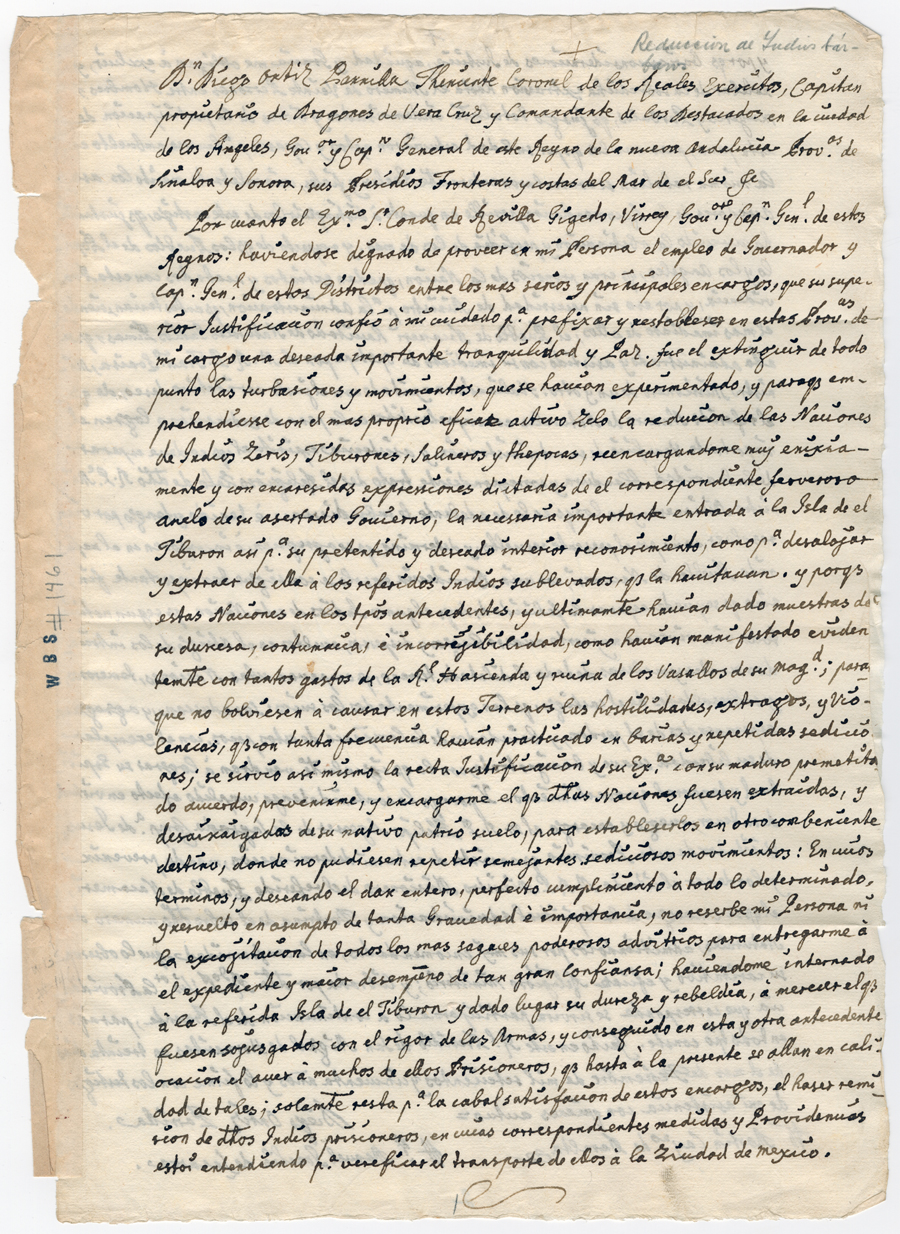 Reduccion de Yndios bár-
baros
Dn. Diego Ortiz Parrilla Theniente Coronel de los Reales Exercitos, Capitan
propietario de Dragones de Vera Cruz y Comandante de los Destacados en la ciudad
de los Angeles, Gou.or y Cap.n General de este Reyno de la nueva Andalucia Prov.as de
Sinaloa y Sonora, sus Presidios Fronteras y costas del Mar de el Sur &c
Por cuanto el Ex.mo S.r Conde de Revilla Gigedo, Virrey, Gou.or y Cap.n Gen.l de estos
Reynos: haviendose dignado de proveer en mi Persona el empleo de Governador y
Cap.n Gen.l de estos Districtos entre los mas serios y principales encargos, que su supe-
rior Justificacion confió à mi cuidado p.a prefixar y restableser en estas Prov.as de
mi cargo una deseada importante tranquilidad y Paz. fue el extinguir de todo
punto las turbasiones y movimientos, que se havian experimentado, y para q em-
prehendiesse con el mas proprio eficaz activo Zelo la reducion de las Naciones
de Indios Zeris, Tiburones, Salineros y thepocas, reencargandome muy enixia-
mente y con encaresidas expressiones dictadas de el correspondiente ferveroso
anelo de su asertado Govierno, la necessaria importante entrada à la Isla de el
Tiburon asi p.a su pretentido y deseado interior reconosimiento, como p.a desalojar
y extraer de ella à los referidos Indios sublevados, q la havitavan. y porq
estas Naciones en los tpos antecedentes, y ultimamte havian dado muestras de
su duresa, contumacia, è incorrejibilidad, como havian manifestado eviden
temte con tantos gastos de la Rl. Hascienda y ruina de los Vasallos de su Mag.d; para
que no bolviesen à causar en estos Terrenos las hostilidades, extragos, y Vio-
lencias, q con tanta frecuencia havian practicado en barias y repetidas sedicio
nes; se sirvio asi mismo la recta Justificacion de su Ex.a con su maduro premedita
do acuerdo, prevenirme, y encargarme el q dthas Naciones fuesen extraidas, y
desairaigadas de su nativo patrio suelo, para estableserlos en otro combeniente
destino, donde no pudiesen repetir semejantes sediciosos movimientos: En cuios
terminos, y deseando el dar entero, perfecto cumplimiento à todo lo determinado,
y resuelto en asumpto de tanta Gravedad è importancia, no reserbe mi Persona ni
la excojitacion de todos los mas sagases poderosos advitrios para entregarme à
el expediente y maior desempeño de tan gran Confiansa; haviendome internado
à la referida Isla de el Tiburon y dado lugar su dureza y rebeldia, à merecer el q
fuesen sojusgados con el rigor de las Armas, y conseguido en esta y otra antecedente
ocacion el aver a muchos de ellos Prisioneros, q hasta à la presente se allan en cali-
dad de tales; solamte resta p.a la cabal satisfacion de estos encargos, el haser remi
sion de dthos Indios prisioneros, en cuias correspondientes medidas y Providencias
estoi entendiendo p.a vereficar el transporte de ellos à la Ziudad de Mexico.
WBS # 1461
1